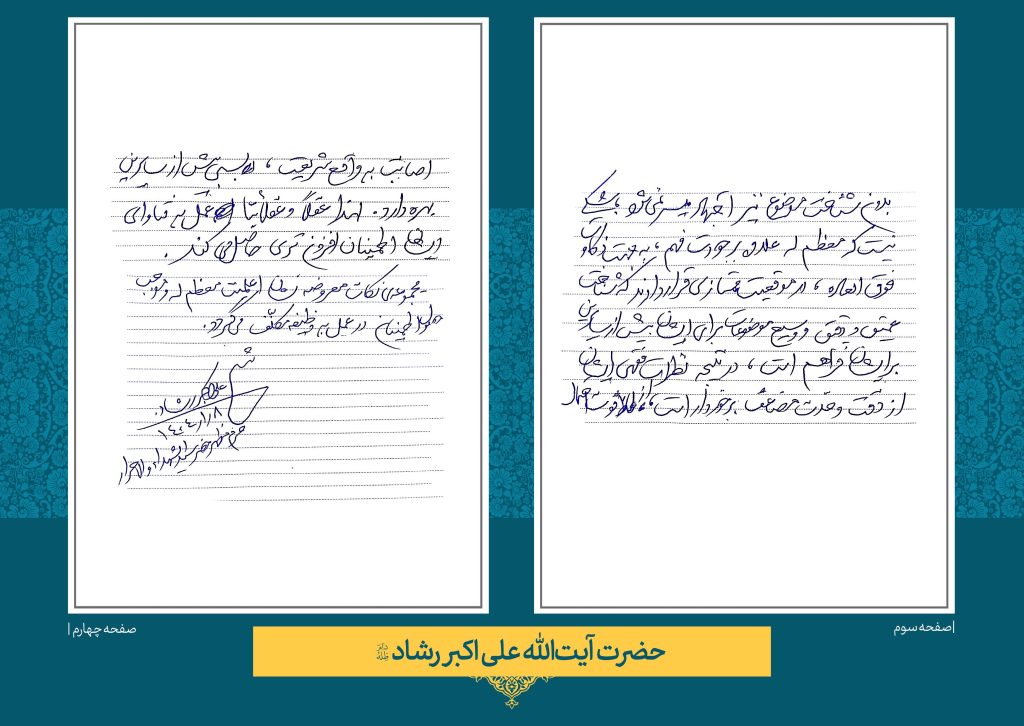 بدون شناخت موضوع نیز اجتهاد میسر نمی‌شود، شکی
نیست که معظم له علاوه بر جودت فهم، به جهت ذکاوت
فوق العاده، در موقعیت ممتازی قرار دارند که شناخت
عمیق و دقیق و وسیع موضوعات برای ایشان بیش از سایرین
برایشان فراهم است، در نتیجه نظرات فقهی ایشان
از دقت و قدرت مضاعف برخوردار است، قوت احتمال
|صفحه سوم
اصابت به واقع شریعت، بیش از سایرین
بهره دارد. لذا عقلاً و عقلائیاً عمل به فتاوای
ایشان اطمینان افزون تری حاصل می کند.
مجموعه‌ی نکات معروضه نشان اعلمیت معظم له و موجب
حصول اطمینان در عمل به وظیفه مکلّف می‌گردد.
علی اکبر رشاد
۱۴۰۴/۱/۸
صفحه چهارم |
حضرت آیت‌الله علی اکبر رشاد